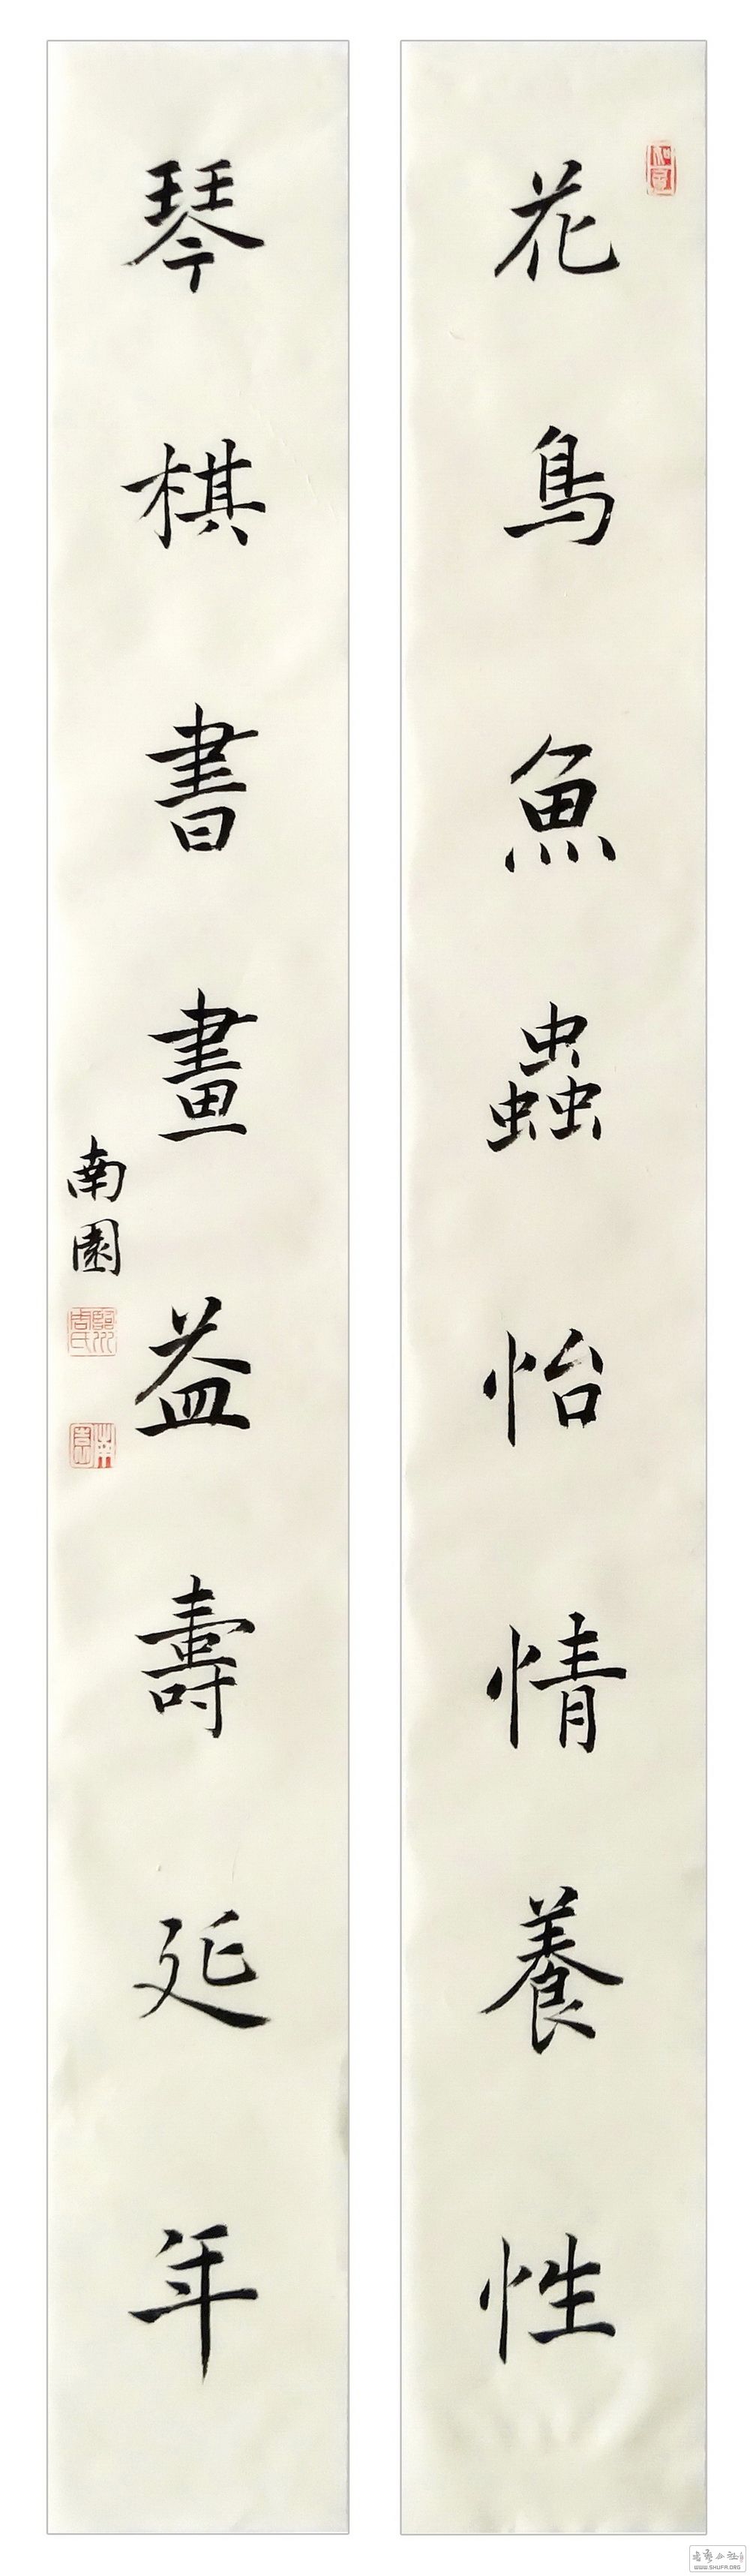 花鳥魚蟲怡情養性
琴棋書畫益壽延年
南園
WWW.SHUFA.ORG